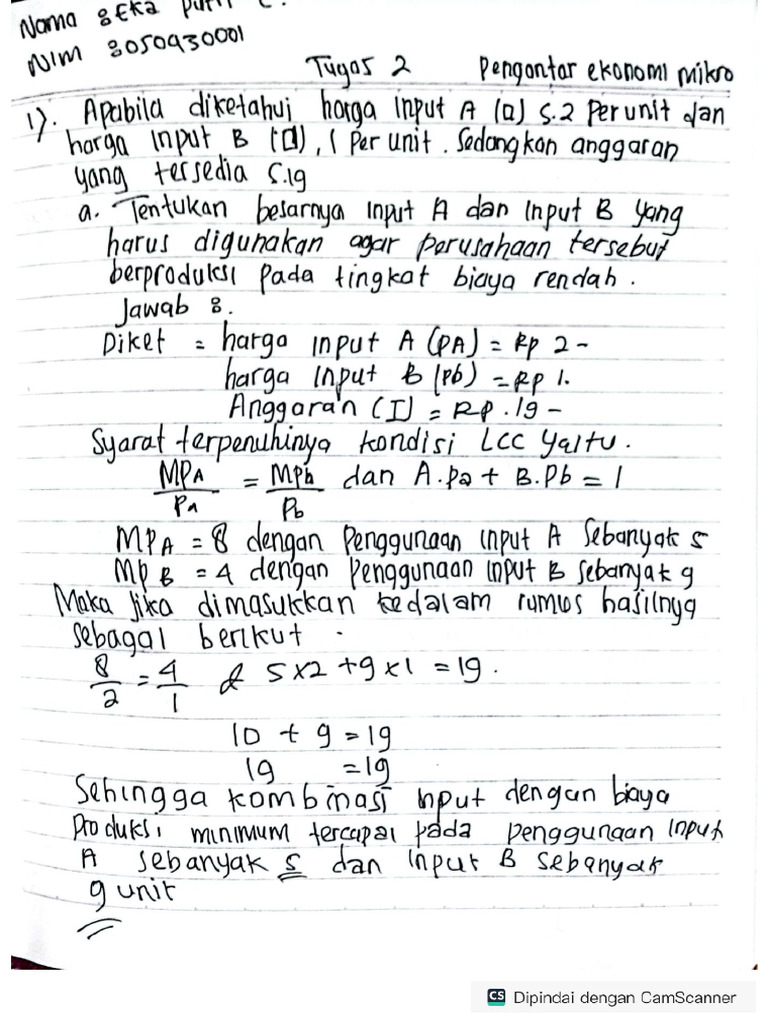 Nama : Eka putri C.
NIM 3050930001
Tugas 2 Pengantar ekonomi mikro
1). Apabila diketahui harga input A (a) $.2 Per unit dan
harga input B (), 1 per unit. Sedangkan anggaran
yang tersedia $.19
a. Tentukan besarnya input A dan Input B yang
harus digunakan agar perusahaan tersebut
berproduksi pada tingkat biaya rendah.
Jawab :.
Diket = harga input A (PA) = Rp 2-
harga input B (Pb) = Rp 1.
Anggaran (I) = Rp.19 -
Syarat terpenuhinya kondisi LCC yaitu.
MPA/PA = MPb/Pb dan A.Pa + B.Pb = 1
MPA = 8 dengan Penggunaan input A Sebanyak 5
MPB = 4 dengan Penggunaan input B sebanyak 9
Maka jika dimasukkan kedalam rumus hasilnya
sebagai berikut .
8/2 = 4/1 & 5x2 + 9x1 = 19.
10 + 9 = 19
19 = 19
Sehingga kombinasi input dengan biaya
Produksi minimum tercapai pada penggunaan input
A sebanyak 5 dan input B sebanyak
9 unit
CS Dipindai dengan CamScanner